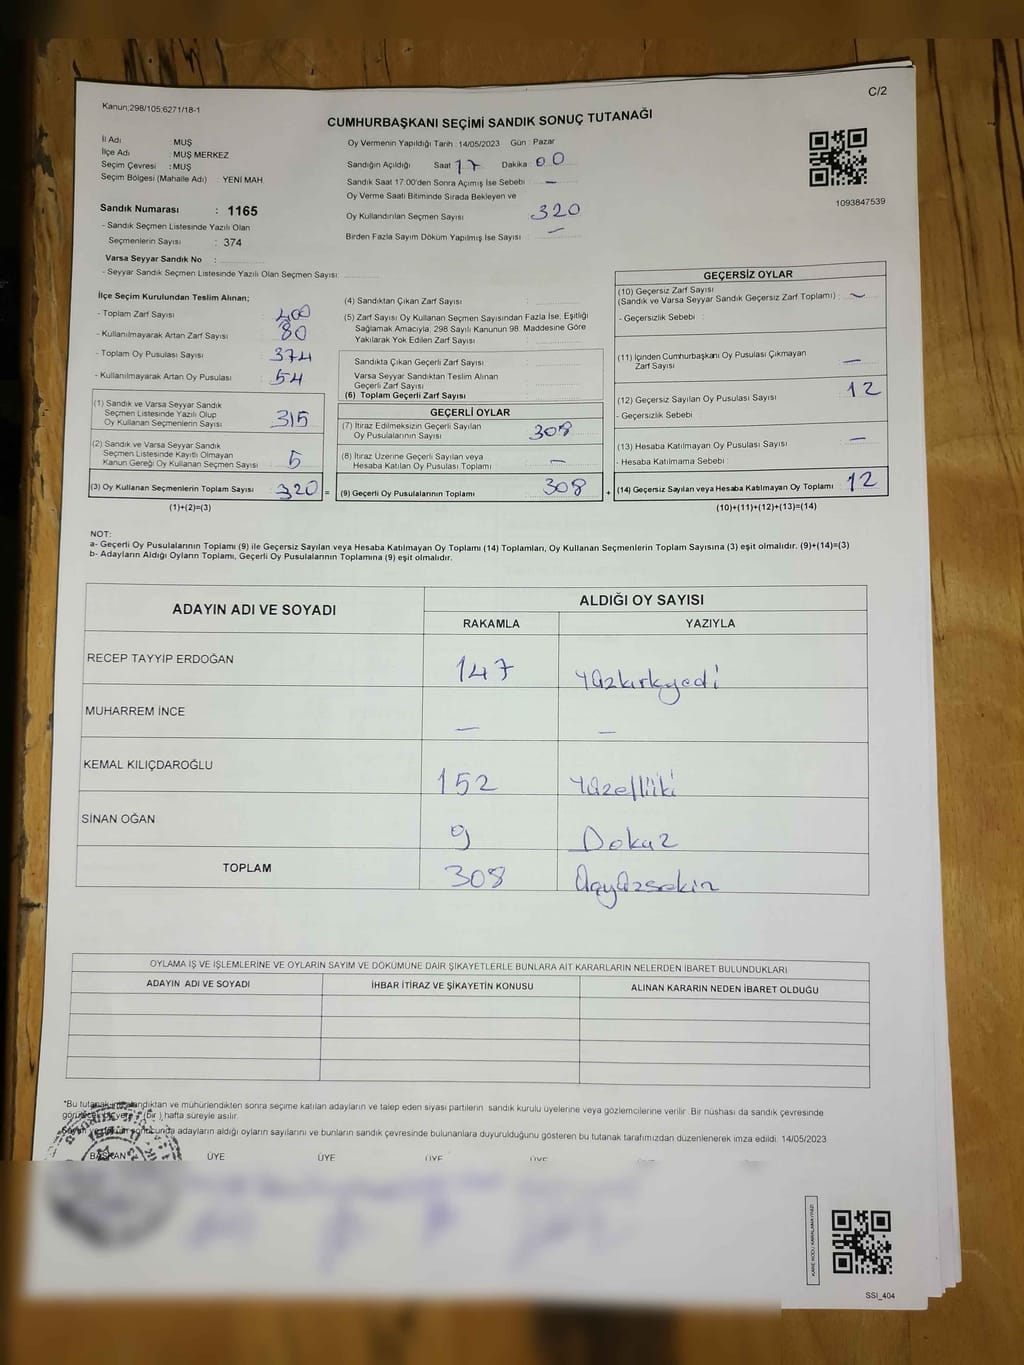 C/2
Kanun;298/105;6271/18-1
CUMHURBAŞKANI SEÇİMİ SANDIK SONUÇ TUTANAĞI
İl Adı : MUŞ
İlçe Adı : MUŞ MERKEZ
Seçim Çevresi : MUŞ
Seçim Bölgesi (Mahalle Adı) : YENİ MAH
Sandık Numarası : 1165
- Sandık Seçmen Listesinde Yazılı Olan
Seçmenlerin Sayısı : 374
Varsa Seyyar Sandık No :
- Seyyar Sandık Seçmen Listesinde Yazılı Olan Seçmen Sayısı:
Oy Vermenin Yapıldığı Tarih : 14/05/2023 Gün : Pazar
Sandığın Açıldığı Saat 17 Dakika 00
Sandık Saat 17:00'den Sonra Açımış İse Sebebi : —
Oy Verme Saati Bitiminde Sırada Bekleyen ve
Oy Kullandırılan Seçmen Sayısı 320
Birden Fazla Sayım Döküm Yapılmış İse Sayısı : —
1093847539
İlçe Seçim Kurulundan Teslim Alınan;
- Toplam Zarf Sayısı : 400
- Kullanılmayarak Artan Zarf Sayısı : 80
- Toplam Oy Pusulası Sayısı : 374
- Kullanılmayarak Artan Oy Pusulası : 54
(1) Sandık ve Varsa Seyyar Sandık
Seçmen Listesinde Yazılı Olup
Oy Kullanan Seçmenlerin Sayısı : 315
(2) Sandık ve Varsa Seyyar Sandık
Seçmen Listesinde Kayıtlı Olmayan
Kanun Gereği Oy Kullanan Seçmen Sayısı : 5
(3) Oy Kullanan Seçmenlerin Toplam Sayısı : 320 =
(1)+(2)=(3)
(4) Sandıktan Çıkan Zarf Sayısı :
(5) Zarf Sayısı Oy Kullanan Seçmen Sayısından Fazla İse, Eşitliği
Sağlamak Amacıyla, 298 Sayılı Kanunun 98. Maddesine Göre
Yakılarak Yok Edilen Zarf Sayısı :
Sandıkta Çıkan Geçerli Zarf Sayısı :
Varsa Seyyar Sandıktan Teslim Alınan
Geçerli Zarf Sayısı :
(6) Toplam Geçerli Zarf Sayısı :
GEÇERLİ OYLAR
(7) İtiraz Edilmeksizin Geçerli Sayılan
Oy Pusulasının Sayısı : 308
(8) İtiraz Üzerine Geçerli Sayılan veya
Hesaba Katılan Oy Pusulası Toplamı : —
(9) Geçerli Oy Pusulalarının Toplamı : 308 +
GEÇERSİZ OYLAR
(10) Geçersiz Zarf Sayısı
(Sandık ve Varsa Seyyar Sandık Geçersiz Zarf Toplamı) : —
- Geçersizlik Sebebi :
(11) İçinden Cumhurbaşkanı Oy Pusulası Çıkmayan
Zarf Sayısı : —
(12) Geçersiz Sayılan Oy Pusulası Sayısı : 12
- Geçersizlik Sebebi :
(13) Hesaba Katılmayan Oy Pusulası Sayısı : —
- Hesaba Katılmama Sebebi :
(14) Geçersiz Sayılan veya Hesaba Katılmayan Oy Toplamı : 12
(10)+(11)+(12)+(13)=(14)
NOT:
a- Geçerli Oy Pusulalarının Toplamı (9) ile Geçersiz Sayılan veya Hesaba Katılmayan Oy Toplamı (14) Toplamları, Oy Kullanan Seçmenlerin Toplam Sayısına (3) eşit olmalıdır. (9)+(14)=(3)
b- Adayların Aldığı Oyların Toplamı, Geçerli Oy Pusulalarının Toplamına (9) eşit olmalıdır.
ADAYIN ADI VE SOYADI
ALDIĞI OY SAYISI
RAKAMLA YAZIYLA
RECEP TAYYİP ERDOĞAN 147 Yüzkırkyedi
MUHARREM İNCE — —
KEMAL KILIÇDAROĞLU 152 Yüzelliiki
SİNAN OĞAN 9 Dokuz
TOPLAM 308 Üçyüzsekiz
OYLAMA İŞ VE İŞLEMLERİNE VE OYLARIN SAYIM VE DÖKÜMÜNE DAİR ŞİKAYETLERLE BUNLARA AİT KARARLARIN NELERDEN İBARET BULUNDUKLARI
ADAYIN ADI VE SOYADI İHBAR İTİRAZ VE ŞİKAYETİN KONUSU ALINAN KARARIN NEDEN İBARET OLDUĞU
*Bu tutanak imzalandıktan ve mühürlendikten sonra seçime katılan adayların ve talep eden siyasi partilerin sandık kurulu üyelerine veya gözlemcilerine verilir. Bir nüshası da sandık çevresinde
(bir) hafta süreyle asılır.
sonucunda adayların aldığı oyların sayılarını ve bunların sandık çevresinde bulunanlara duyurulduğunu gösteren bu tutanak tarafımızdan düzenlenerek imza edildi. 14/05/2023
BAŞKAN ÜYE ÜYE ÜYE ÜYE
SSI_404